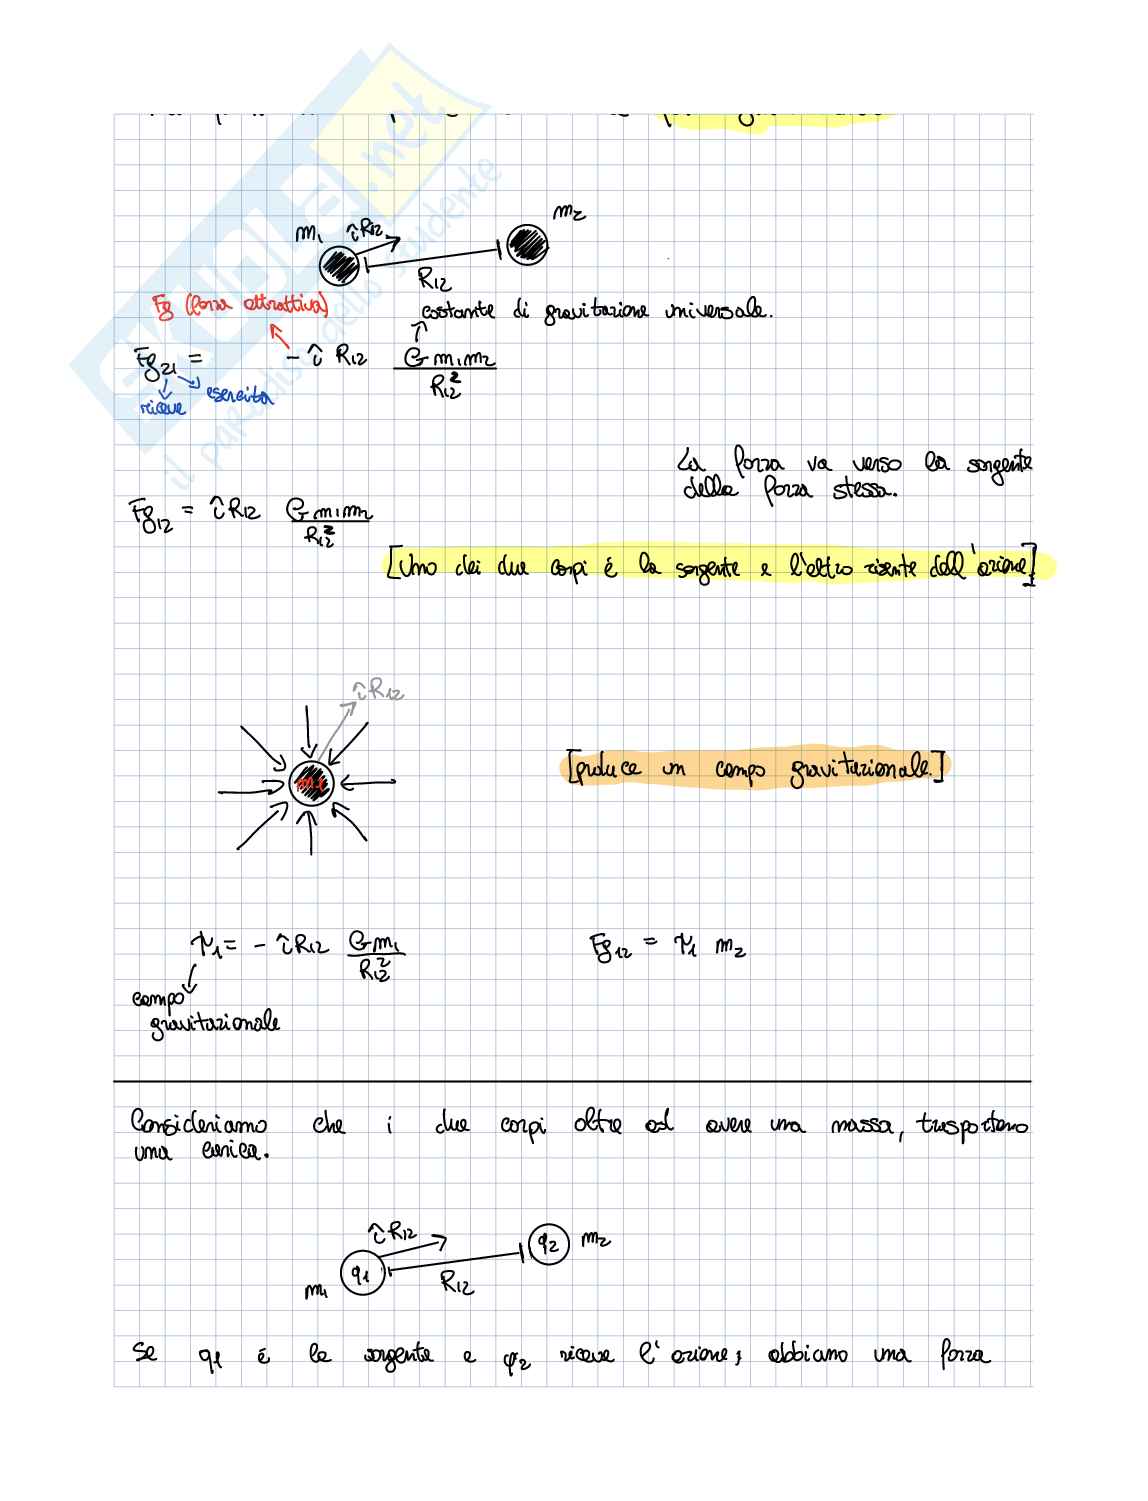 SKUOLA.net
il paradiso dello studente
m₁ îR₁₂ m₂
R₁₂
Fg (forza attrattiva)
costante di gravitazione universale.
Fg₂₁ = - î R₁₂ G m₁m₂ / R₁₂²
riceve esercita
La forza va verso la sorgente
della forza stessa.
Fg₁₂ = îR₁₂ G m₁m₂ / R₁₂²
[Uno dei due corpi é la sorgente e l'altro risente dell'azione]
îR₁₂
m₁
[produce un campo gravitazionale.]
ψ₁ = - îR₁₂ Gm₁ / R₁₂² Fg₁₂ = ψ₁ m₂
campo
gravitazionale
Consideriamo che i due corpi oltre ad avere una massa, trasportano
una carica.
îR₁₂ q₂ m₂
m₁ q₁ R₁₂
Se q₁ é la sorgente e q₂ riceve l'azione, abbiamo una forza